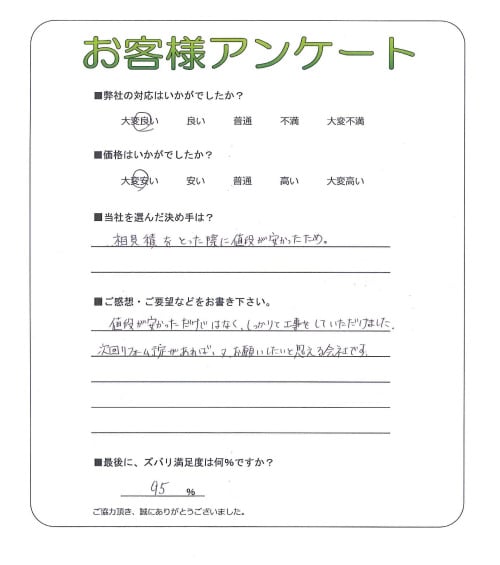 お客様アンケート
■弊社の対応はいかがでしたか？
大変良い 良い 普通 不満 大変不満
■価格はいかがでしたか？
大変安い 安い 普通 高い 大変高い
■当社を選んだ決め手は？
相見積をとった際に値段が安かったため。
■ご感想・ご要望などをお書き下さい。
値段が安かっただけではなく、しっかりと工事をしていただけました。
次回リフォーム予定があれば、又、お願いしたいと思える会社です。
■最後に、ズバリ満足度は何％ですか？
95 %
ご協力頂き、誠にありがとうございました。